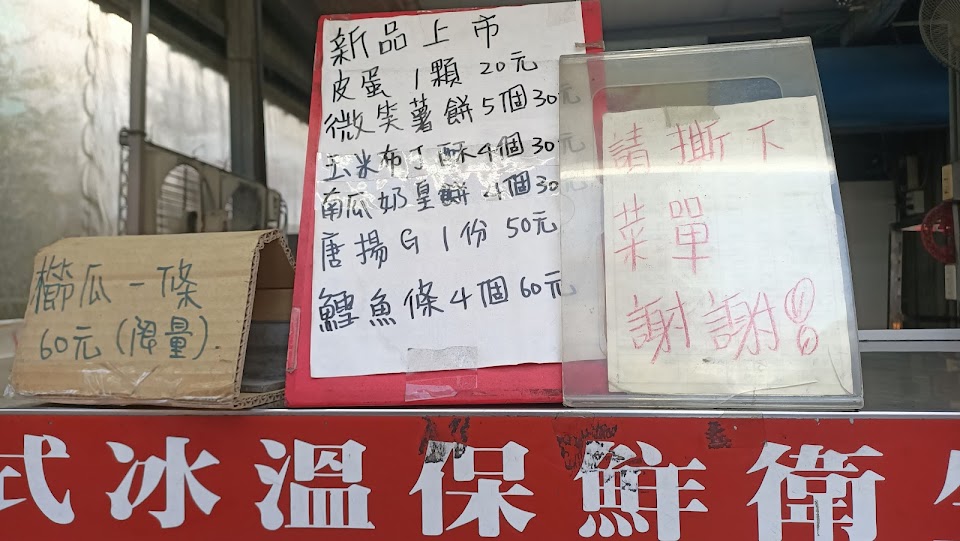 櫛瓜一條
60元(限量)
新品上市
皮蛋1顆20元
微笑薯餅5個30元
玉米布丁酥4個30元
南瓜奶皇餅4個30
唐揚G1份50元
鱈魚條4個60元
請撕下
菜單
謝謝!!
式冰溫保鮮衛生